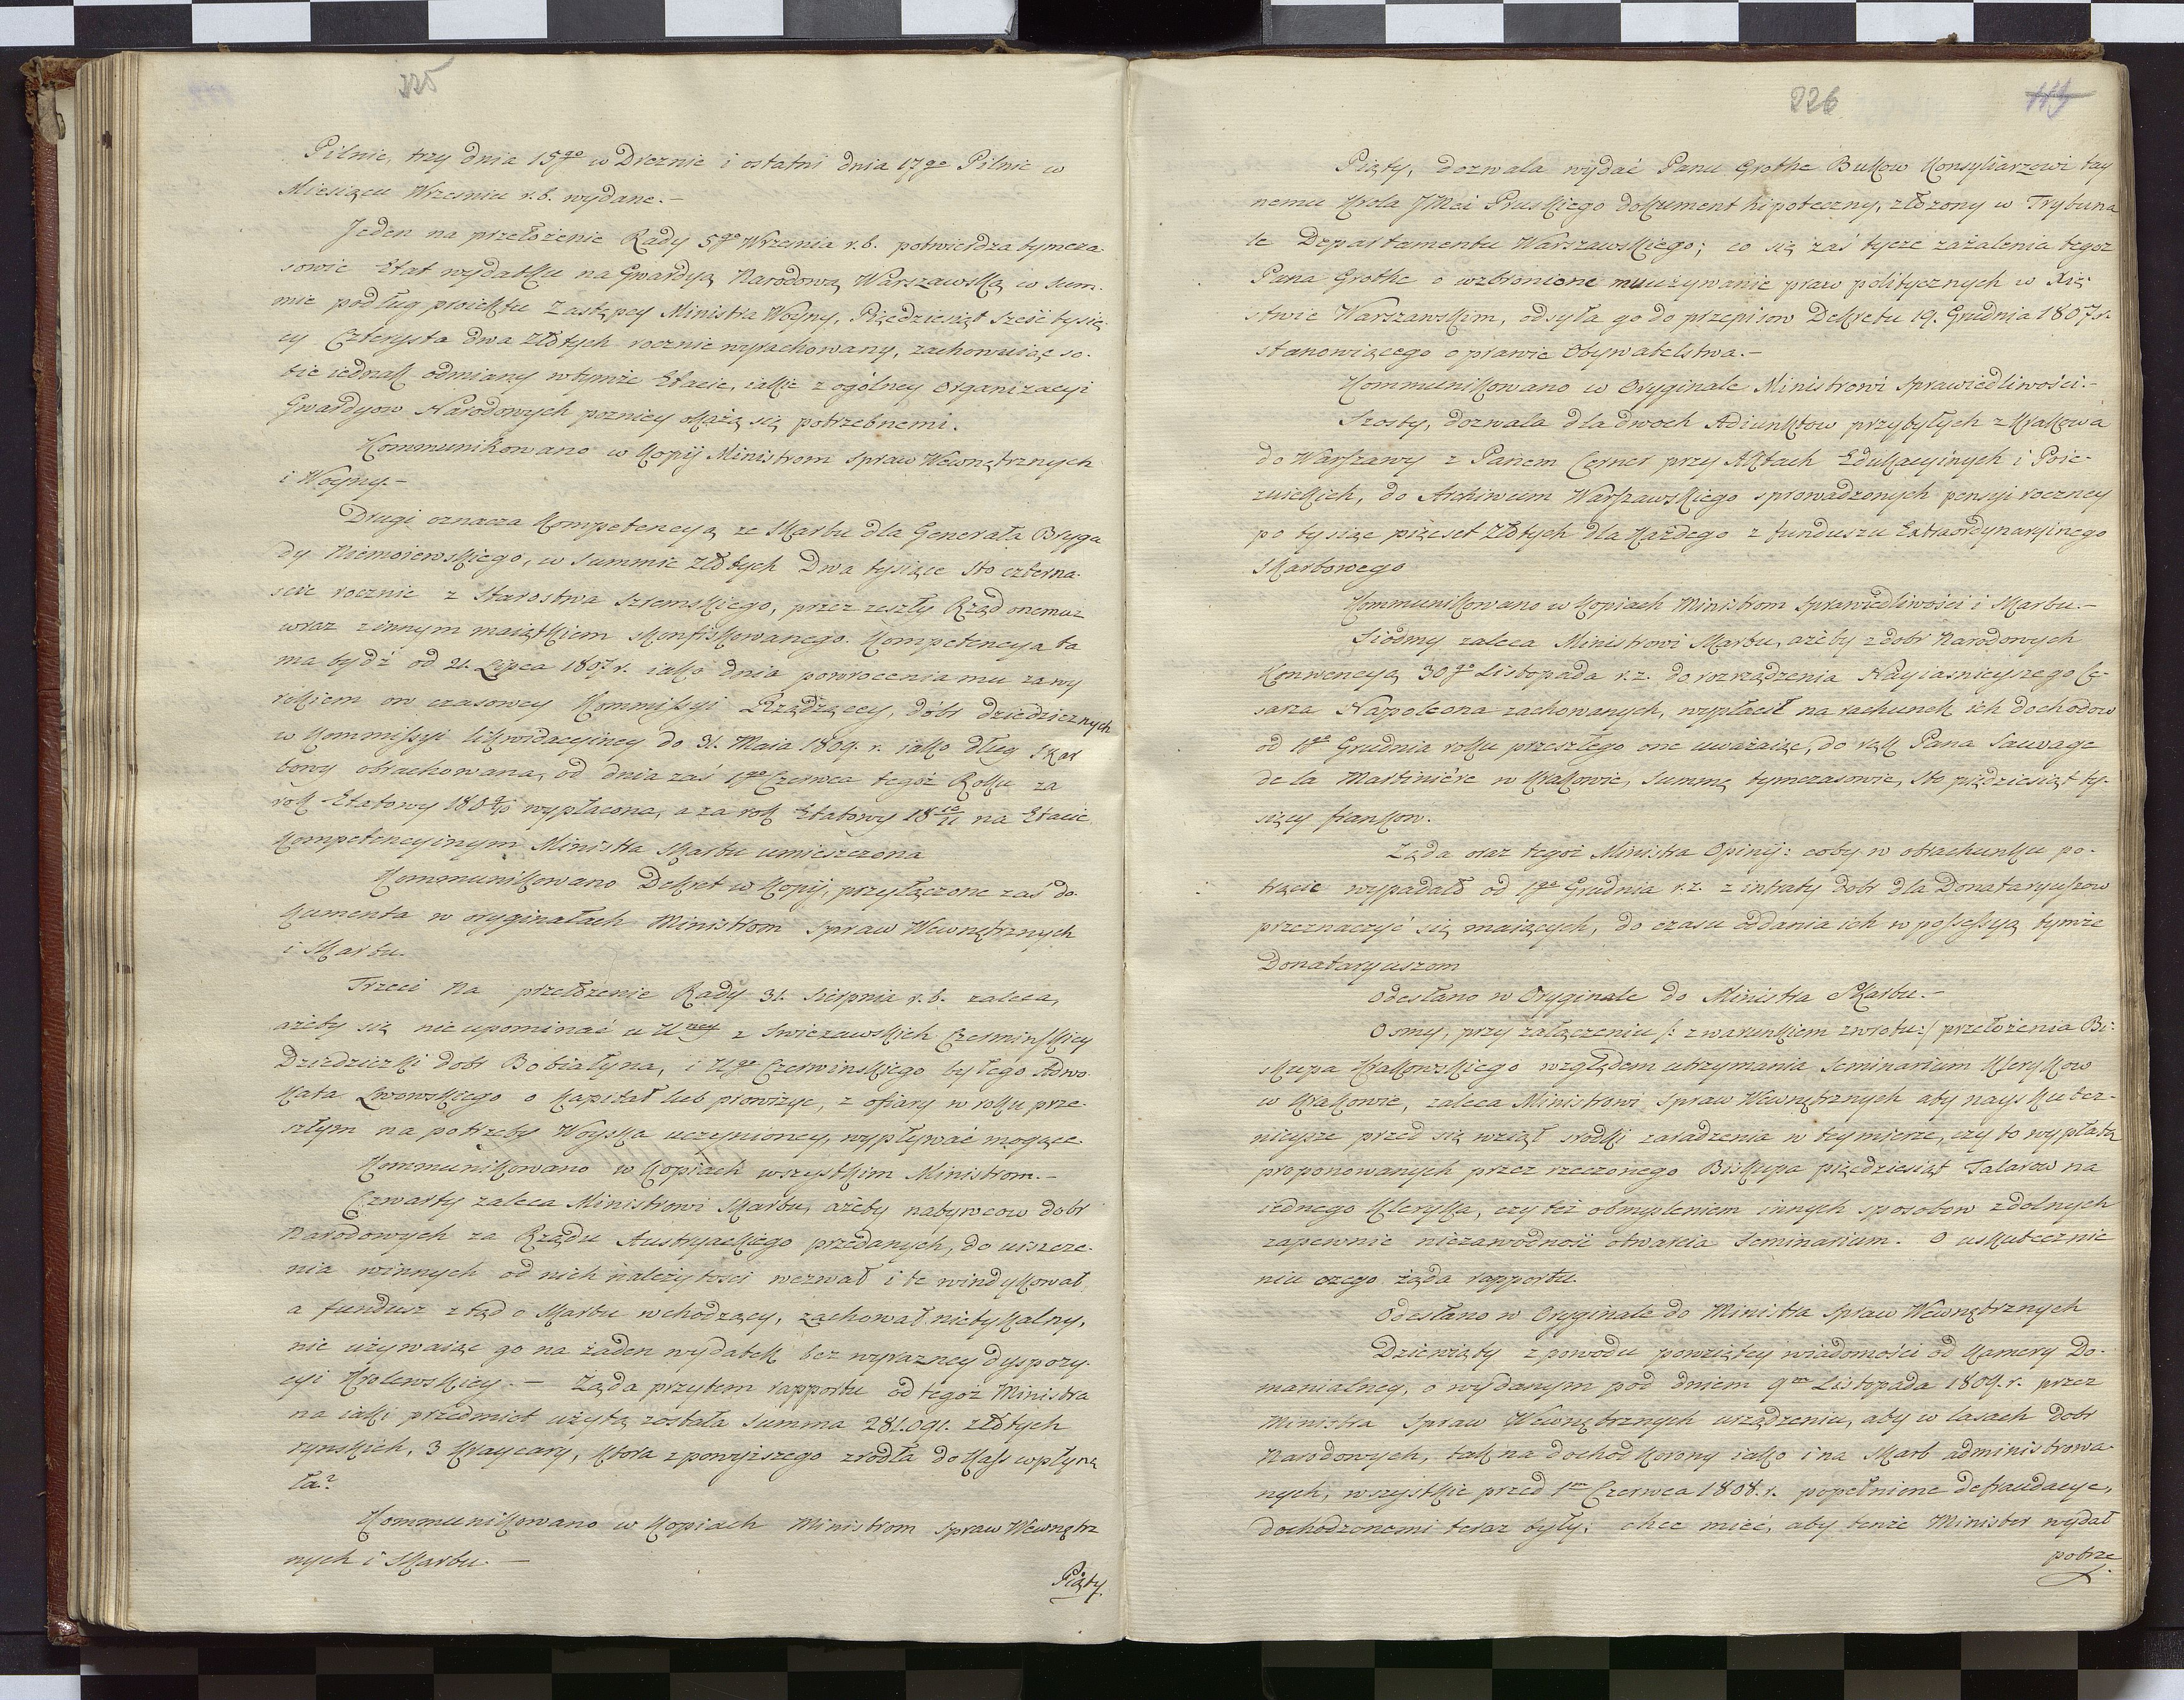 225
Pilnic, trzy dnia 15go w Dreznie i ostatni dnia 17go Pilnic w
Miesiącu Wrzesniu r.b. wydane.-
Jeden na przełożenie Rady 5go Wrzesnia r.b. potwierdza tymcza-
sowie Etat wydatku na Gwardyą Narodową Warszawską w sum-
mie podług proiektu Zastępcy Ministra Woyny, Pięcdziesiąt sześć tysię-
cy Czterysta dwa Złotych rocznie wyrachowany, zachowuiąc so-
bie iednak odmiany w tymże Etacie, iakie z ogólney Organizacyi
Gwardyow Narodowych pozniey okażą się potrzebnemi.
Kommunikowano w Kopij Ministrom Spraw Wewnętrznych
i Woyny.-
Drugi oznacza Kompetencyą ze Skarbu dla Generała Bryga
dy Niemoiewskiego, w Summie Złotych Dwa tysiące sto czterna-
scie rocznie z Starostwa Szremskiego, przez zeszły Rząd onemuz
wraz z innym maiątkiem skonfiskowanego. Kompetencya ta
ma bydź od 21. Lipca 1807 r. iako dnia powrocenia mu za wy
rokiem ow czasowey Kommissyi Rządzącey, dóbr dziedzicznych
w Kommissyi likwidacyiney do 31. Maia 1809. r. iako dług Skar
bowy obrachowana, od dnia zaś 1go Czerwca tegoż Roku za
rok Etatowy 1809/10 wypłacona, a za rok Etatowy 1810/11 na Etacie
Kompetencyinym Ministra Skarbu umieszczona
Kommunikowano Dekret w Kopij, przyłączone zaś do-
kumenta w oryginałach Ministrom Spraw Wewnętrznych
i Skarbu.
Trzeci na przełożenie Rady 31. Sierpnia r.b. zaleca,
ażeby się nie upominać u Urney z Swiezawskich Czerminskiey
Dziedziczki dobr Bobiałyna, i Ugo Czerwinskiego byłego Adwo
kata Lwowskiego o kapitał lub prowizye, z ofiary w roku prze-
szłym na potrzeby Woyska uczynioney, wypływać mogące.
Kommunikowano w Kopiach wszystkim Ministrom.-
Czwarty zaleca Ministrowi Skarbu, ażeby nabywcow dobr
Narodowych za Rządu Austryackiego przedanych, do uiszcze-
nia winnych od nich należytości wezwał i te windykował,
a fundusz ztąd o Skarbu wchodzący, zachował nietykalny,
nie używaiąc go na żaden wydatek bez wyrazney dyspozy-
cyi Krolewskiey.- Żąda przytem rapportu od tegoż Ministra
na iaki przedmiot użytą została Summa 281.091. złotych
rynskich, 3 Kraycary, ktora z powyższego zrodła do Kass wpłynę
ła?
Kommunikowano w Kopiach Ministrom Spraw Wewnętrz
nych i Skarbu.-
Piąty.
226
113
Piąty, dozwala wydać Panu Grothe Bukow Konsyliarzowi tay
nemu Krola JMci Pruskiego dokument hipoteczny, złożony w Trybuna
le Departamentu Warszawskiego; co się zaś tycze zażalenia tegoz
Pana Grothe o wzbronione mu używanie praw politycznych w Xię-
stwie Warszawskim, odsyła go do przepisow Dekretu 19. Grudnia 1807 r.
stanowiącego o prawie Obywatelstwa.-
Kommunikowano w Oryginale Ministrowi Sprawiedliwości.-
Szosty, dozwala dla dwoch Adiunktow przybyłych z Krakowa
do Warszawy z Panem Cerner przy Aktach Edukacyinych i Poie-
zuickich, do Archiwum Warszawskiego sprowadzonych pensyi roczney
po tysiąc pięćset Złotych dla każdego z funduszu Extraordynaryinego
Skarbowego
Kommunikowano w Kopiach Ministrom Sprawiedliwości i Skarbu.-
Siodmy zaleca Ministrowi Skarbu, ażeby z dobr Narodowych
Konwencyą 30go Listopada r.z. do rozrządzenia Nayiasnieyszego Ce-
sarza Napoleona zachowanych, wypłacił na rachunek ich dochodow
od 1go Grudnia roku przeszłego one uważaiąc, do rąk Pana Sauvage
de la Martiniére w Krakowie, Summę tymczasowie, sto pięcdziesiąt ty-
sięcy frankow.
Żąda oraz tegoż Ministra Opinij: coby w obrachunku po-
trącic wypadało od 1go Grudnia r.z. z intraty dobr dla Donataryuszow
przeznaczyć się maiących, do czasu oddania ich w possessyą tymże
Donataryuszom
Odesłano w Oryginale do Ministra Skarbu.-
Osmy, przy załączeniu /: z warunkiem zwrotu:/ przełożenia Bi-
skupa Krakowskiego względem utrzymania Seminarium Klerykow
w Krakowie, zaleca Ministrowi Spraw Wewnętrznych aby nayskutecz-
nieysze przed się wziął srodki zaradzenia w tey mierze, czy to wypłatą
proponowanych przez rzeczonego Biskupa pięcdziesiąt Talarow na
iednego Kleryka, czy też obmysleniem innych sposobow zdolnych
zapewnie niezawodność otwarcia Seminarium. O uskutecznie
niu czego żąda rapportu.
Odesłano w Oryginale do Ministra Spraw Wewnętrznych
Dziewiąty z powodu powziętey wiadomości od Kamery Do-
manialney, o wydanym pod dniem 9m Listopada 1809. r. przez
Ministra Spraw Wewnętrznych urządzeniu, aby w lasach dobr
Narodowych, tak na dochod Korony iako i na Skarb administrowa-
nych, wszystkie przed 1m Czerwca 1808. r. popełnione defraudacye,
dochodzonemi teraz były; chce mieć, aby tenże Minister wydał
potrze